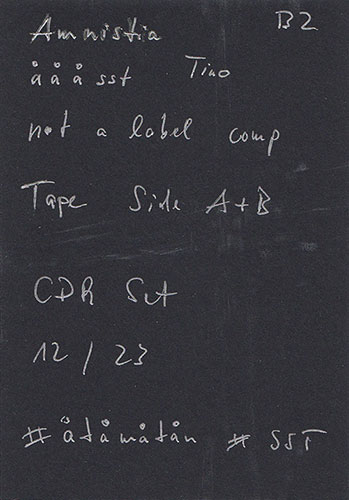 Amnistia B2
å å å sst Tino
not a label comp
Tape Side A+B
CDR Set
12 / 23
# åtåmåtån # SST